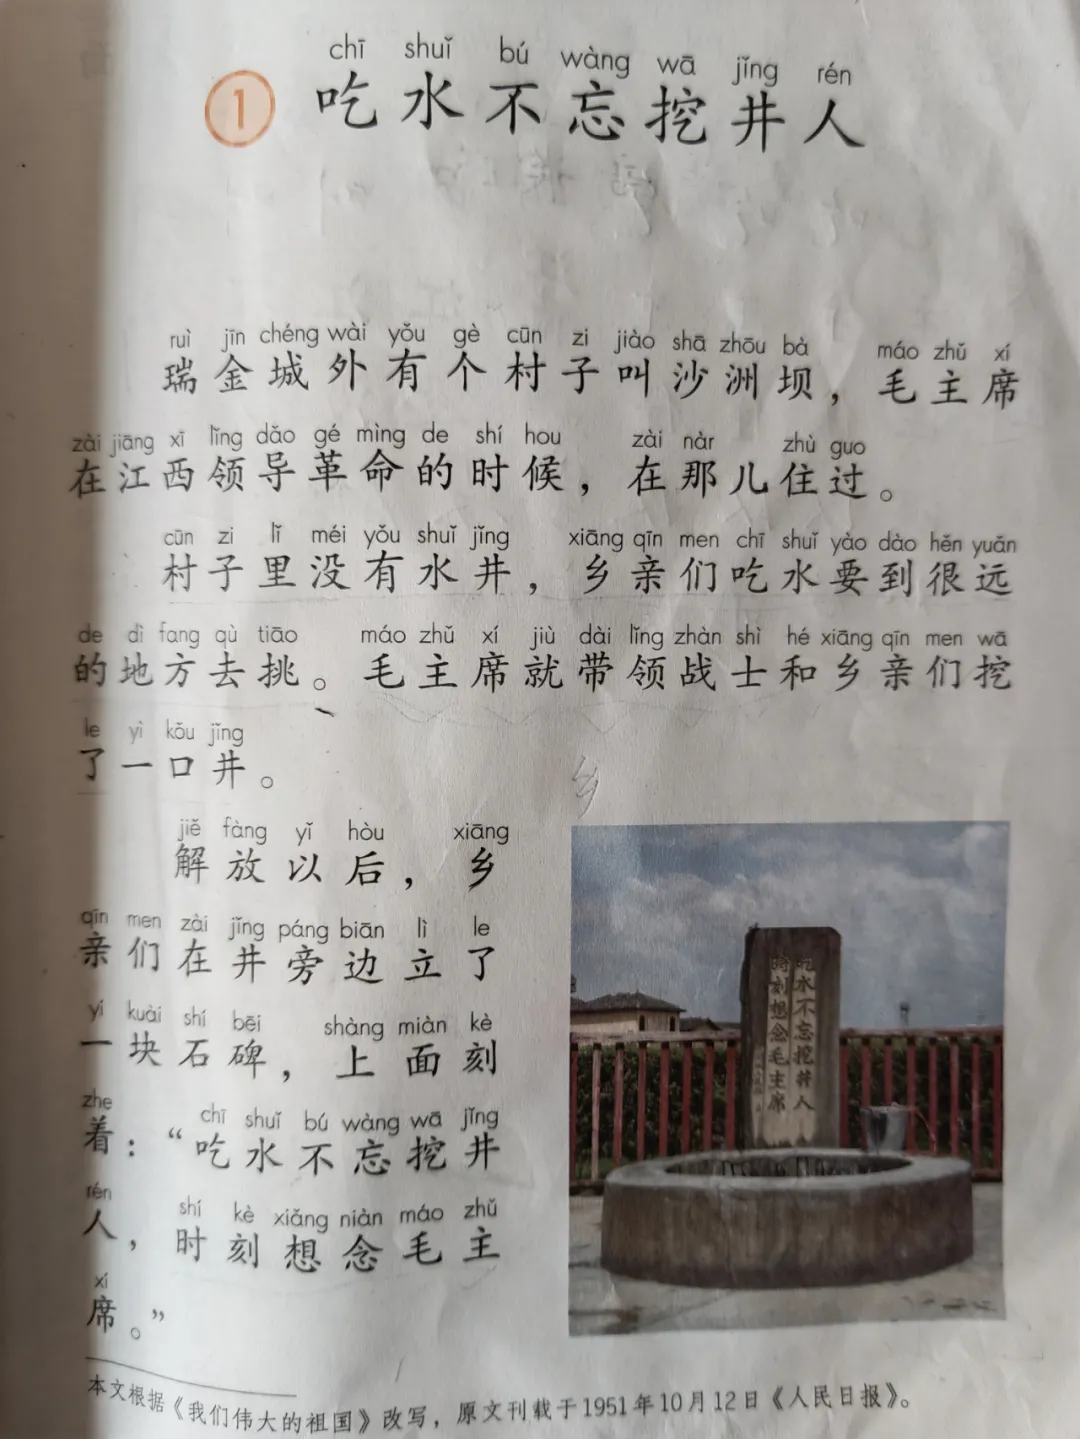 chī shuǐ bú wàng wā jǐng rén
1 吃水不忘挖井人
ruì jīn chéng wài yǒu gè cūn zi jiào shā zhōu bà máo zhǔ xí
瑞金城外有个村子叫沙洲坝，毛主席
zài jiāng xī lǐng dǎo gé mìng de shí hou zài nàr zhù guo
在江西领导革命的时候，在那儿住过。
cūn zi lǐ méi yǒu shuǐ jǐng xiāng qīn men chī shuǐ yào dào hěn yuǎn
村子里没有水井，乡亲们吃水要到很远
de dì fang qù tiāo máo zhǔ xí jiù dài lǐng zhàn shì hé xiāng qīn men wā
的地方去挑。毛主席就带领战士和乡亲们挖
le yì kǒu jǐng
了一口井。
乡
jiě fàng yǐ hòu xiāng
解放以后，乡
qīn men zài jǐng páng biān lì le
亲们在井旁边立了
yí kuài shí bēi shàng miàn kè
一块石碑，上面刻
zhe chī shuǐ bú wàng wā jǐng
着：“吃水不忘挖井
rén shí kè xiǎng niàn máo zhǔ
人，时刻想念毛主
xí
席。”
吃水不忘挖井人
时刻想念毛主席
本文根据《我们伟大的祖国》改写，原文刊载于1951年10月12日《人民日报》。